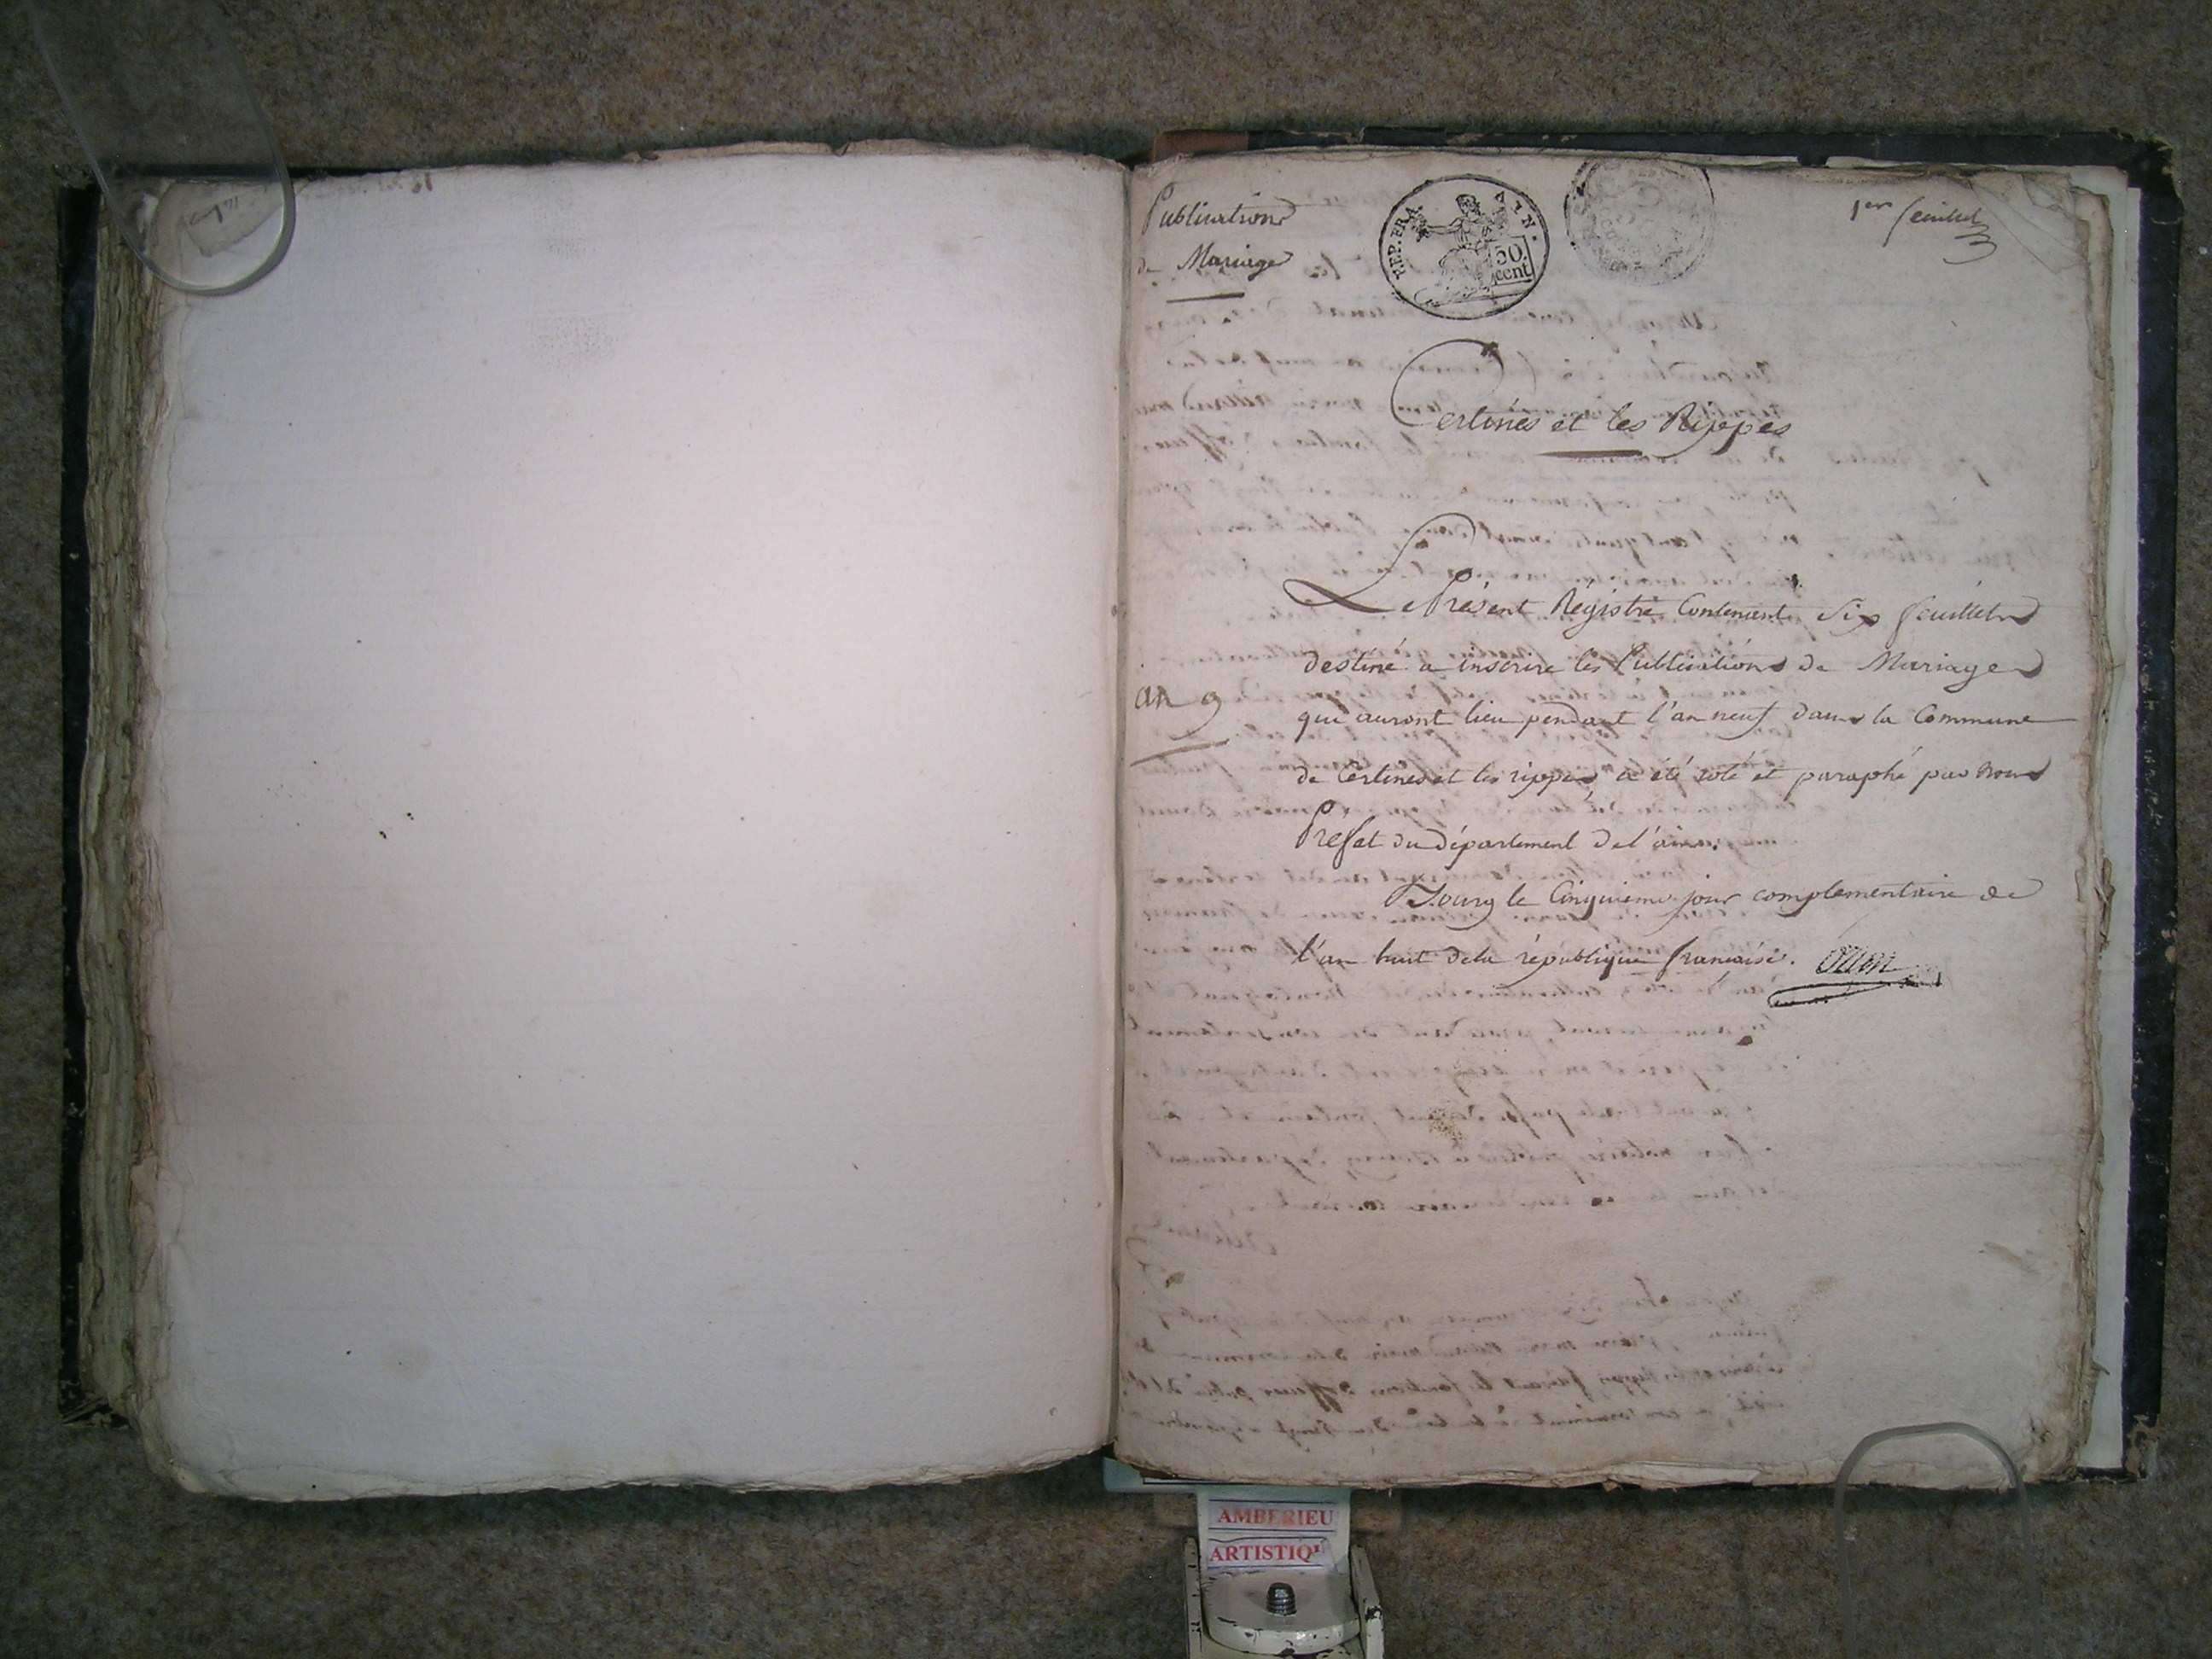 Publications
de Mariage
REP. FRA. AIN.
50 cent
1er feuillet
Certines et les Rippes
Le Présent Régistre Contenant Six feuillets
destiné a inscrire les Publications de Mariages
an 9
qui auront lieu pendant l'an neuf dans la Commune
de Certines et les rippes a été coté et paraphé par nous
Préfet du département de l'ain.
Bourg le Cinquieme jour complementaire de
l'an huit de la république francaise.
AMBERIEU
ARTISTIQ